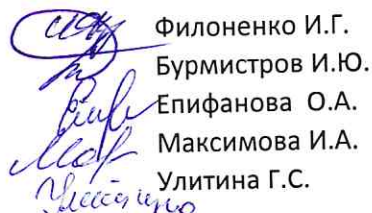 Филоненко И.Г.
Бурмистров И.Ю.
Епифанова О.А.
Максимова И.А.
Улитина Г.С.